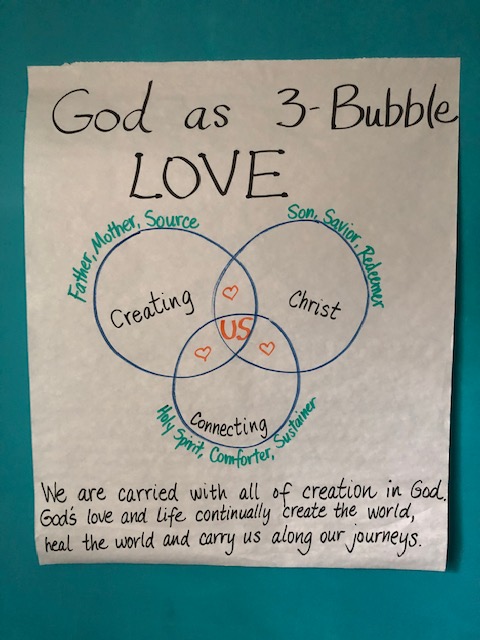 God as 3-Bubble
LOVE
Father, Mother, Source
Son, Savior, Redeemer
Creating
Christ
US
Connecting
Holy Spirit, Comforter, Sustainer
We are carried with all of creation in God.
God's love and life continually create the world,
heal the world and carry us along our journeys.